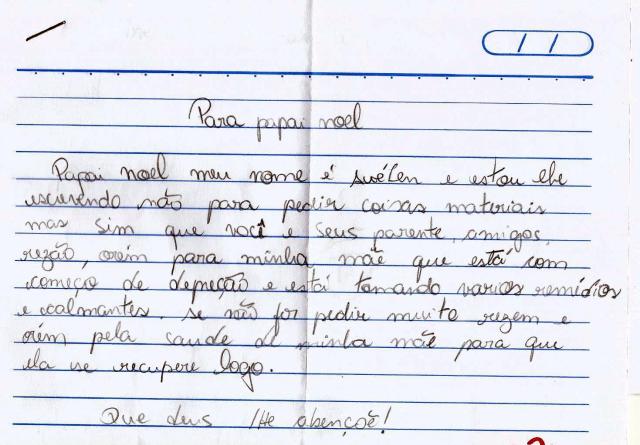 Para papai noel
Papai noel meu nome é suélen e estou lhe
escrevendo não para pedir coisas materiais
mas sim que você e seus parente, amigos,
rezão, orém para minha mãe que está com
começo de depreção e está tomando varios remédios
e calmantes. se não for pedir muito rezem e
orém pela saude de minha mãe para que
ela se recupere logo.
Que deus lHe abençoê!